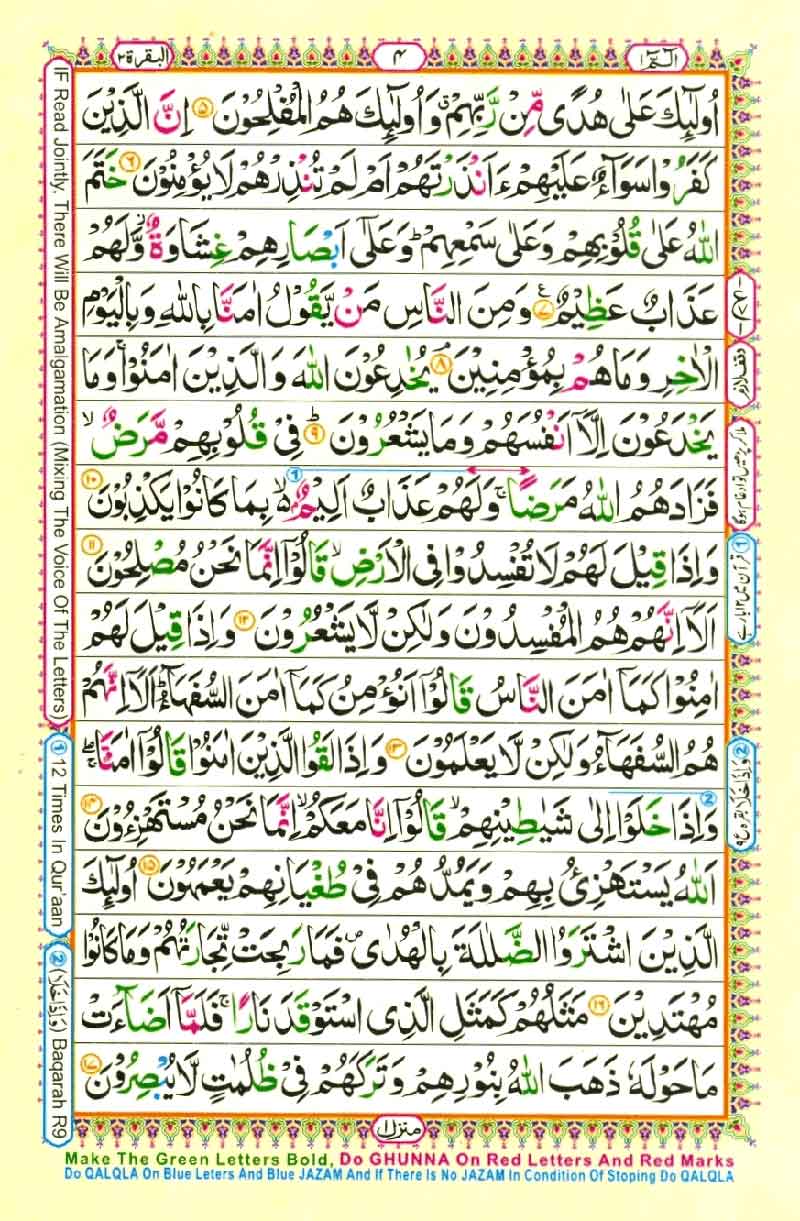 الٓمّٓ ١
٤
البقرة ٢
اُولٰٓئِكَ عَلٰى هُدًى مِّنْ رَّبِّهِمْ ۗ وَاُولٰٓئِكَ هُمُ الْمُفْلِحُوْنَ ۝٥ اِنَّ الَّذِيْنَ
كَفَرُوْا سَوَآءٌ عَلَيْهِمْ ءَاَنْذَرْتَهُمْ اَمْ لَمْ تُنْذِرْهُمْ لَا يُؤْمِنُوْنَ ۝٦ خَتَمَ
اللّٰهُ عَلٰى قُلُوْبِهِمْ وَعَلٰى سَمْعِهِمْ ؕ وَعَلٰٓى اَبْصَارِهِمْ غِشَاوَةٌ ۙ وَّلَهُمْ
عَذَابٌ عَظِيْمٌ ۝٧ وَمِنَ النَّاسِ مَنْ يَّقُوْلُ اٰمَنَّا بِاللّٰهِ وَبِالْيَوْمِ
الْاٰخِرِ وَمَا هُمْ بِمُؤْمِنِيْنَ ۝٨ يُخٰدِعُوْنَ اللّٰهَ وَالَّذِيْنَ اٰمَنُوْا ۚ وَمَا
يَخْدَعُوْنَ اِلَّآ اَنْفُسَهُمْ وَمَا يَشْعُرُوْنَ ۝٩ؕ فِىْ قُلُوْبِهِمْ مَّرَضٌ ۙ
فَزَادَهُمُ اللّٰهُ مَرَضًا ۚ وَلَهُمْ عَذَابٌ اَلِيْمٌ ۢ ۙ بِمَا كَانُوْا يَكْذِبُوْنَ ۝١٠
وَاِذَا قِيْلَ لَهُمْ لَا تُفْسِدُوْا فِى الْاَرْضِ ۙ قَالُوْٓا اِنَّمَا نَحْنُ مُصْلِحُوْنَ ۝١١
اَلَآ اِنَّهُمْ هُمُ الْمُفْسِدُوْنَ وَلٰكِنْ لَّا يَشْعُرُوْنَ ۝١٢ وَاِذَا قِيْلَ لَهُمْ
اٰمِنُوْا كَمَآ اٰمَنَ النَّاسُ قَالُوْٓا اَنُؤْمِنُ كَمَآ اٰمَنَ السُّفَهَآءُ ؕ اَلَآ اِنَّهُمْ
هُمُ السُّفَهَآءُ وَلٰكِنْ لَّا يَعْلَمُوْنَ ۝١٣ وَاِذَا لَقُوا الَّذِيْنَ اٰمَنُوْا قَالُوْٓا اٰمَنَّا ۚۖ
وَاِذَا خَلَوْا اِلٰى شَيٰطِيْنِهِمْ ۙ قَالُوْٓا اِنَّا مَعَكُمْ ۙ اِنَّمَا نَحْنُ مُسْتَهْزِءُوْنَ ۝١٤
اَللّٰهُ يَسْتَهْزِئُ بِهِمْ وَيَمُدُّهُمْ فِىْ طُغْيَانِهِمْ يَعْمَهُوْنَ ۝١٥ اُولٰٓئِكَ
الَّذِيْنَ اشْتَرَوُا الضَّلٰلَةَ بِالْهُدٰى ۪ فَمَا رَبِحَتْ تِّجَارَتُهُمْ وَمَا كَانُوْا
مُهْتَدِيْنَ ۝١٦ مَثَلُهُمْ كَمَثَلِ الَّذِى اسْتَوْقَدَ نَارًا ۚ فَلَمَّآ اَضَآءَتْ
مَا حَوْلَهٗ ذَهَبَ اللّٰهُ بِنُوْرِهِمْ وَتَرَكَهُمْ فِىْ ظُلُمٰتٍ لَّا يُبْصِرُوْنَ ۝١٧
منزل ١
وقف لازم
پڑھیں تو ادغام ہوگا
① قرآن میں ۱۲ بار ہے
② وَاِذَا خَلَا
IF Read Jointly, There Will Be Amalgamation (Mixing The Voice Of The Letters)
① 12 Times In Qur'aan
② (وَاِذَا خَلَا) Baqarah R9
Make The Green Letters Bold, Do GHUNNA On Red Letters And Red Marks
Do QALQLA On Blue Leters And Blue JAZAM And If There Is No JAZAM In Condition Of Stoping Do QALQLA